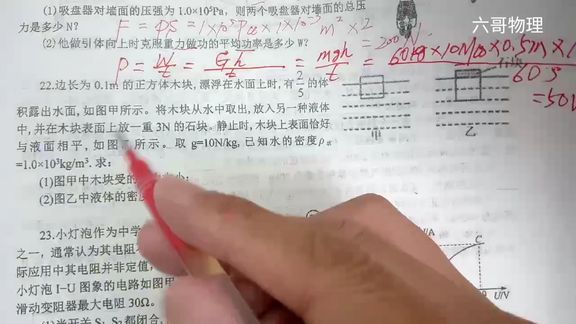 六哥物理
(1)吸盘器对墙面的压强为1×10⁵Pa，则两个吸盘器对墙面的总压
力是多少N？ F = PS = 1×10⁵Pa×1×10⁻³m²×2
(2)他做引体向上时克服重力做功的平均功率是多少W？ =200N
P = W/t = Gh/t = mgh/t = 60kg×10N/kg×0.5m×1
60s
=50W
22.边长为0.1m的正方体木块，漂浮在水面上时，有2/5的体
积露出水面，如图甲所示。将木块从水中取出，放入另一种液体
中，并在木块表面上放一重3N的石块。静止时，木块上表面恰好
与液面相平，如图 所示。取 g=10N/kg，已知水的密度ρ水
=1.0×10³kg/m³. 求：
(1)图甲中木块受的 大小；
(2)图乙中液体的密
石块
甲 乙
23.小灯泡作为中学
之一，通常认为其电阻
际应用中其电阻并非定值，
小灯泡 I–U 图象的电路如图甲
滑动变阻器最大电阻30Ω。
(1)当开关S₁、S₂都闭合，
I/A
C
U/V